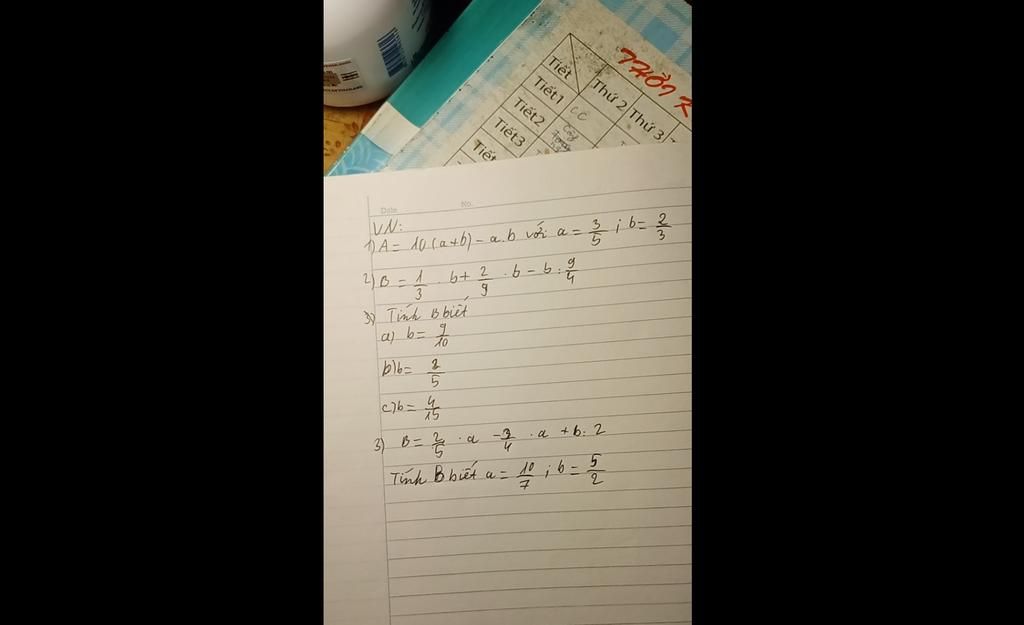 THỜI K
Tiết
Thứ 2
Thứ 3
Tiết1
CC
Tiết2
Tiết3
Tiết
Date No.
VN:
1) A = 10(a+b) - a.b với a = 3/5 ; b = 2/3
2) B = 1/3 . b + 2/9 . b - b : 9/4
3) Tính B biết
a) b = 9/10
b) b = 2/5
c) b = 4/15
3) B = 2/5 . a - 3/4 . a + b : 2
Tính B biết a = 10/7 ; b = 5/2